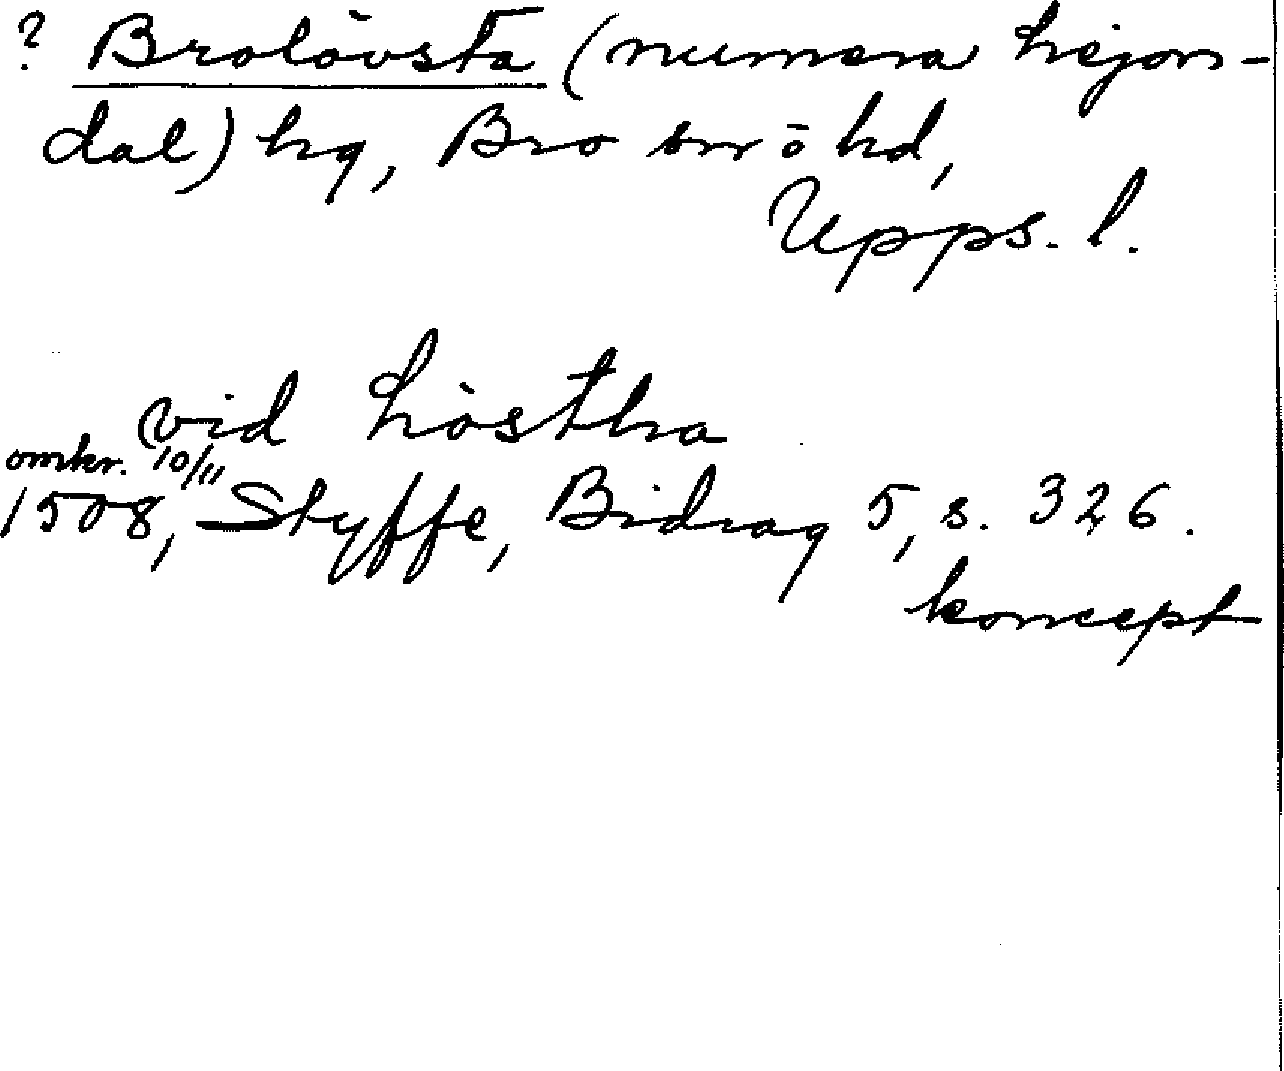 ? Brolövsta (numera Lejon-
dal) hg, Bro sn o hd,
Upps. l.
vid Löstha
omkr. 10/11
1508, Styffe, Bidrag 5, s. 326.
koncept